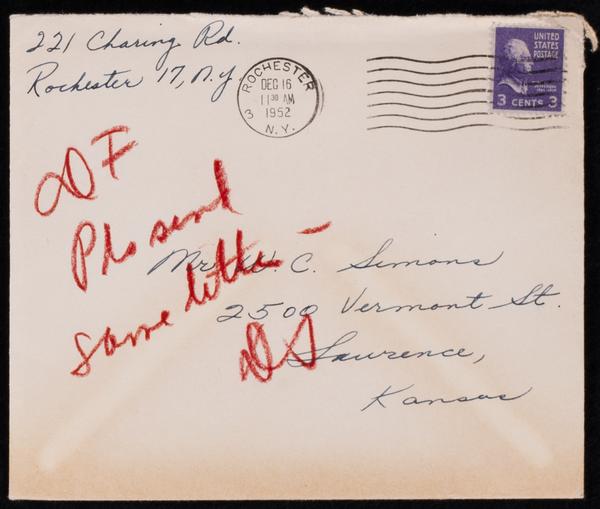 221 Charing Rd.
Rochester 17, N.Y.
ROCHESTER
DEC 16
11 30 AM
1952
3 N.Y.
UNITED
STATES
POSTAGE
3 CENTS 3
DF
Pls send
same letter -
DS
Mr. W. C. Simons
2500 Vermont St.
Lawrence,
Kansas